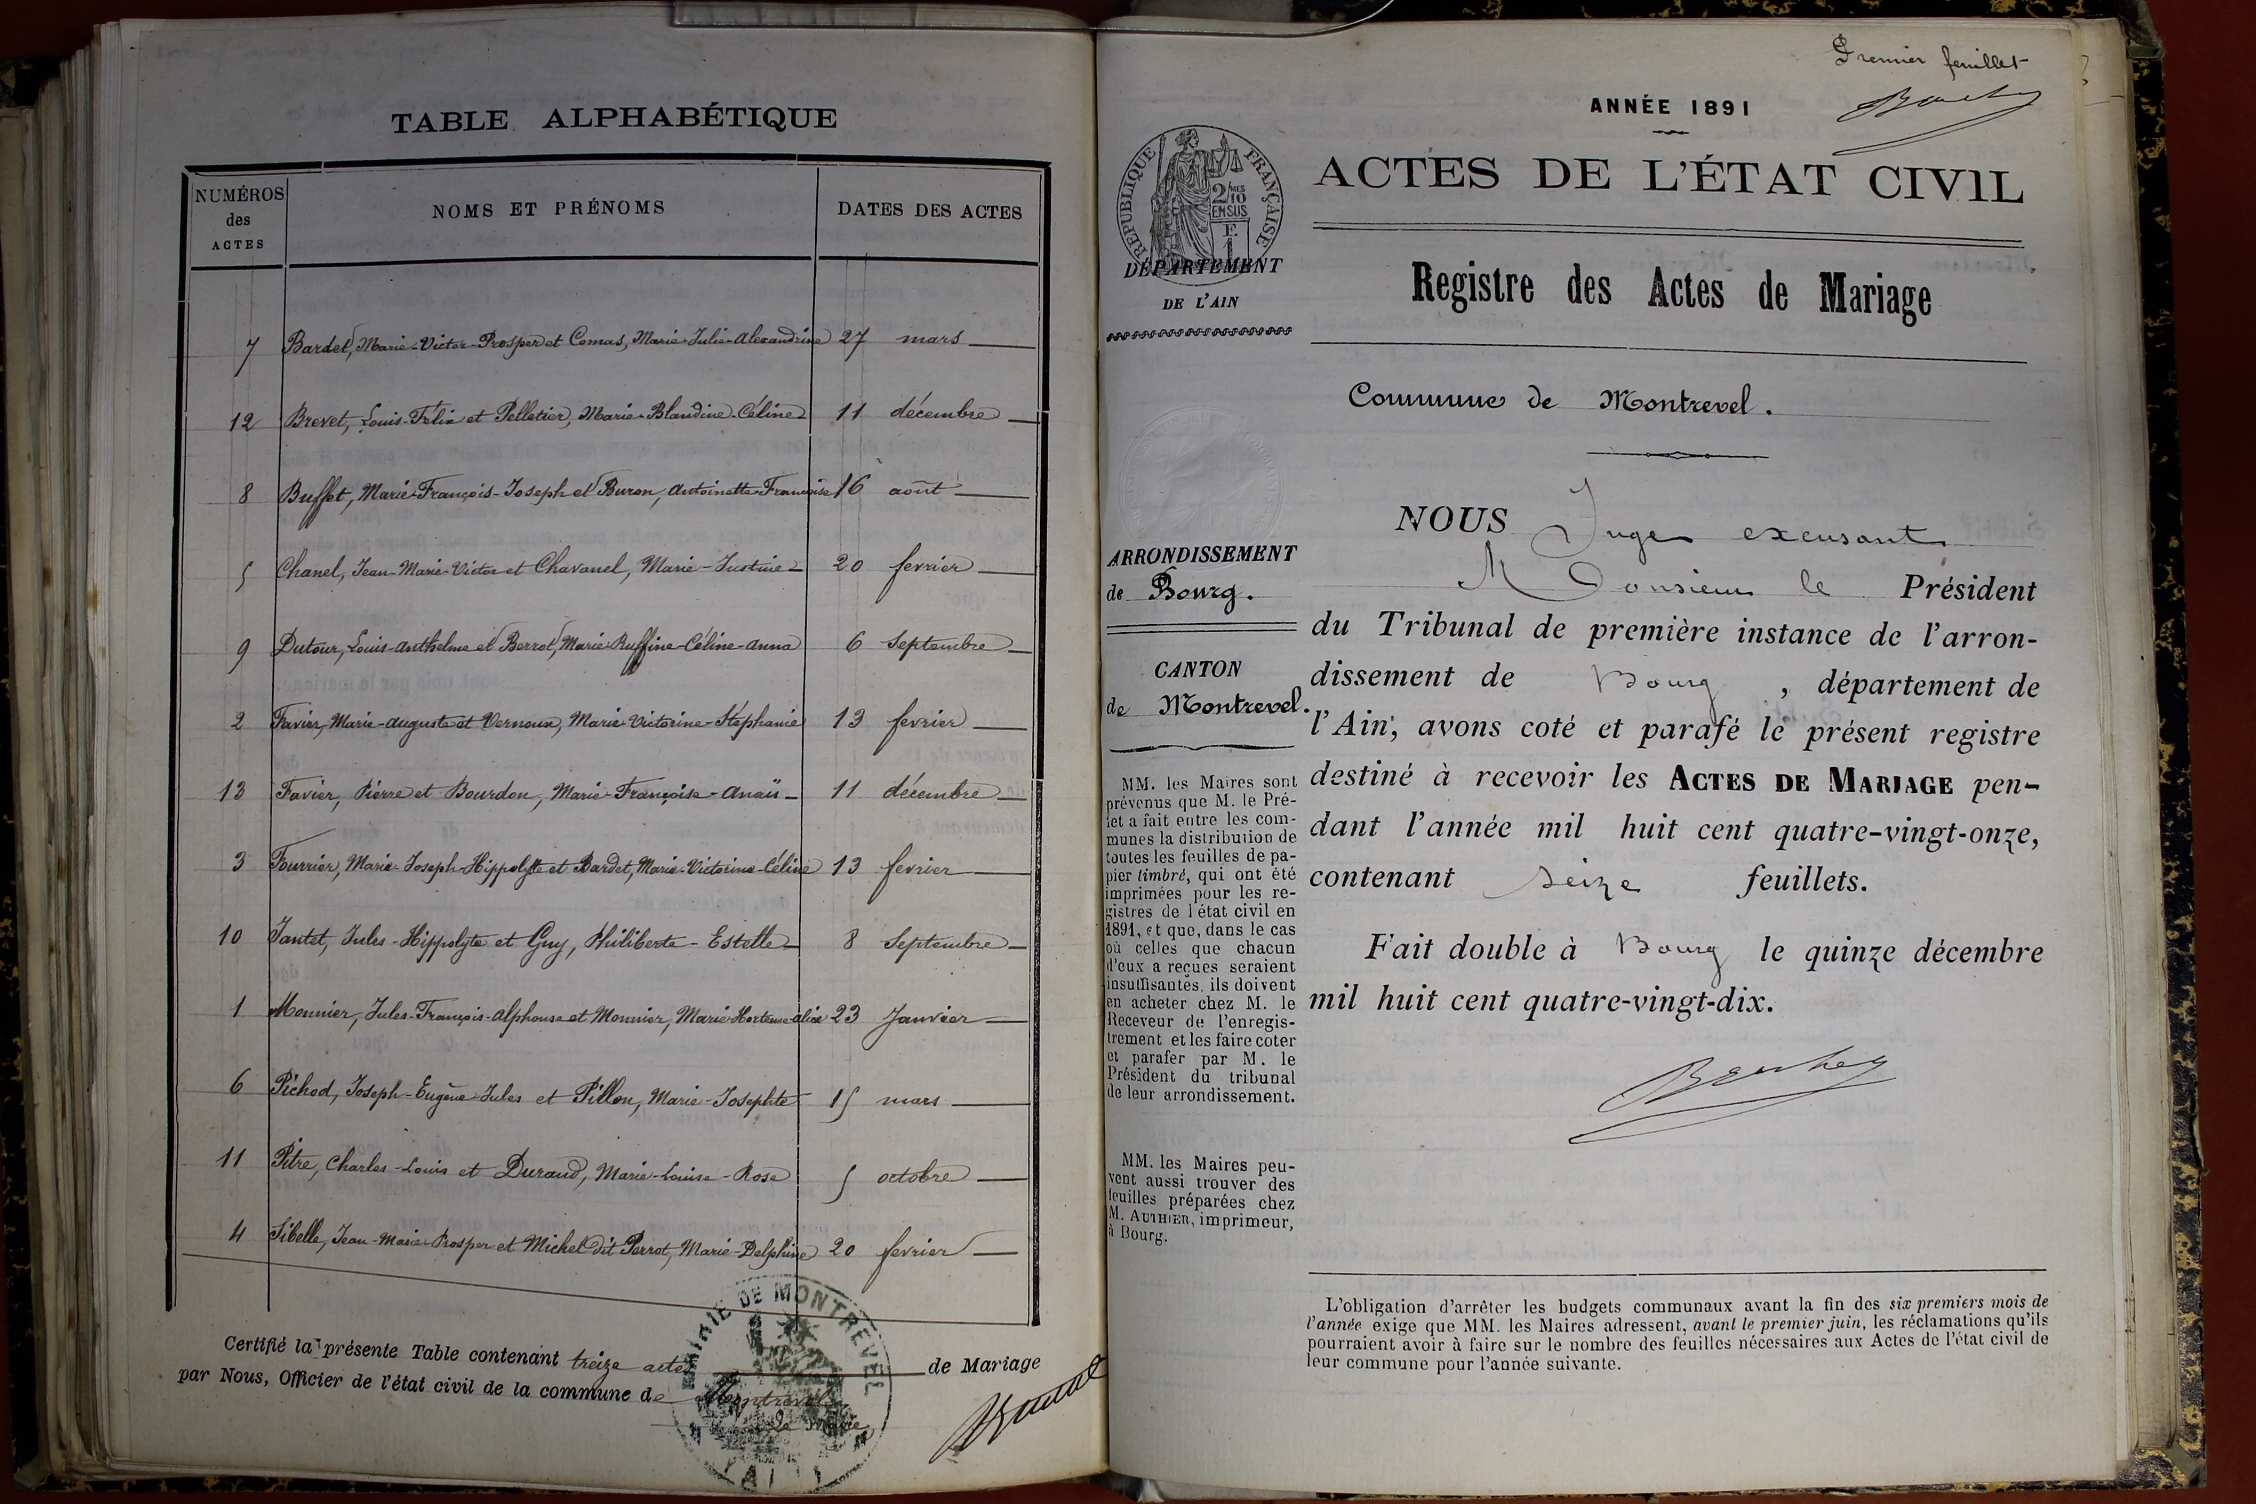 TABLE ALPHABÉTIQUE
NUMÉROS
des
ACTES
NOMS ET PRÉNOMS
DATES DES ACTES
7 Bardet, Marie-Victor-Prosper et Comas, Marie-Julie-Alexandrine 27 mars
12 Brevet, Louis-Félix et Pelletier, Marie-Blandine-Céline 11 décembre
8 Buffet, Marie-François-Joseph et Buron, Antoinette-Françoise 16 août
5 Chanel, Jean-Marie-Victor et Chavanel, Marie-Justine 20 fevrier
9 Dutour, Louis-Anthelme et Berrot, Marie-Ruffine-Céline-Anna 6 Septembre
2 Favier, Marie-Auguste et Vernoux, Marie-Victorine-Stéphanie 13 fevrier
13 Favier, Pierre et Bourdon, Marie-Françoise-Anaïs 11 décembre
3 Fourrier, Marie-Joseph-Hippolyte et Bardet, Marie-Victorine-Céline 13 fevrier
10 Jantet, Jules-Hippolyte et Guy, Philiberte-Estelle 8 Septembre
1 Monnier, Jules-François-Alphonse et Monnier, Marie-Hortense-Alice 23 Janvier
6 Pichod, Joseph-Eugène-Jules et Pillon, Marie-Josephte 15 mars
11 Pitre, Charles-Louis et Durand, Marie-Louise-Rose 5 octobre
4 Sibelle, Jean-Marie-Prosper et Michel dit Perrot, Marie-Delphine 20 fevrier
Certifié la présente Table contenant treize actes de Mariage
par Nous, Officier de l'état civil de la commune de Montrevel
Le Maire
MAIRIE DE MONTREVEL
AIN
Premier feuillet
ANNÉE 1891
RÉPUBLIQUE FRANÇAISE
2/10MES
EN SUS
F.
1
DÉPARTEMENT
DE L'AIN
ACTES DE L'ÉTAT CIVIL
Registre des Actes de Mariage
Commune de Montrevel.
ARRONDISSEMENT
de Bourg.
CANTON
de Montrevel.
MM. les Maires sont
prévenus que M. le Pré-
fet a fait entre les com-
munes la distribution de
toutes les feuilles de pa-
pier timbré, qui ont été
imprimées pour les re-
gistres de l'état civil en
1891, et que, dans le cas
où celles que chacun
d'eux a reçues seraient
insuffisantes, ils doivent
en acheter chez M. le
Receveur de l'enregis-
trement et les faire coter
et parafer par M. le
Président du tribunal
de leur arrondissement.
MM. les Maires peu-
vent aussi trouver des
feuilles préparées chez
M. AUTHIER, imprimeur,
à Bourg.
NOUS Juge excusant
Monsieur le Président
du Tribunal de première instance de l'arron-
dissement de Bourg, département de
l'Ain, avons coté et parafé le présent registre
destiné à recevoir les ACTES DE MARIAGE pen-
dant l'année mil huit cent quatre-vingt-onze,
contenant seize feuillets.
Fait double à Bourg le quinze décembre
mil huit cent quatre-vingt-dix.
L'obligation d'arrêter les budgets communaux avant la fin des six premiers mois de
l'année exige que MM. les Maires adressent, avant le premier juin, les réclamations qu'ils
pourraient avoir à faire sur le nombre des feuilles nécessaires aux Actes de l'état civil de
leur commune pour l'année suivante.